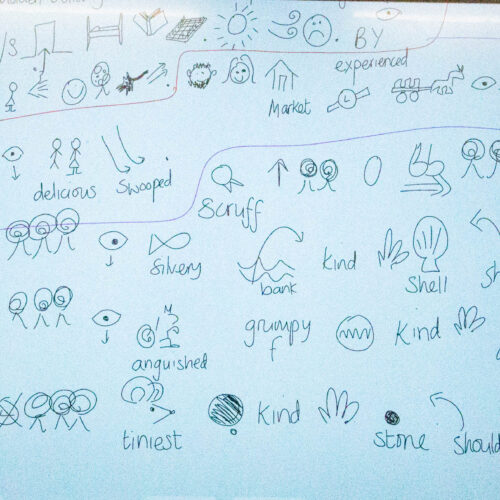 /S
BY
experienced
Market
delicious swooped
Scruff
silvery bank Kind Shell Sh
anguished grumpy f Kind
tiniest Kind Stone should